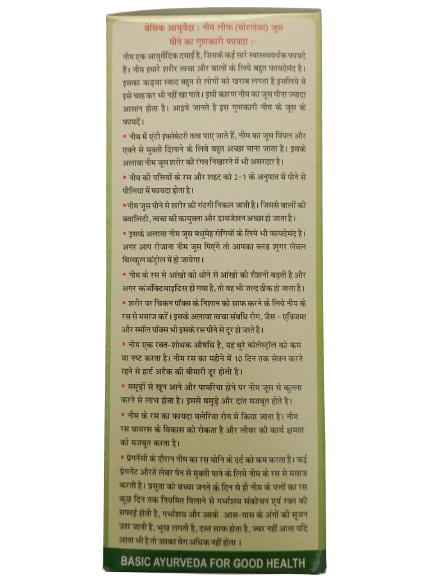 बेसिक आयुर्वेदा : नीम लीफ (मारगोसा) जूस
पीने का गुणकारी फायदा :-
नीम एक आयुर्वेदिक दवाई है, जिसके कई सारे स्वास्थ्यवर्धक फायदे
हैं। नीम हमारे शरीर त्वचा और बालों के लिये बहुत फायदेमंद है।
इसका कड़वा स्वाद बहुत से लोगों को खराब लगता है इसलिये वे
इसे चाह कर भी नहीं खा पाते। इसी कारण नीम का जूस पीना ज्यादा
आसान होता है। आइये जानते है इस गुणकारी नीम के जूस के
फायदें।
• नीम में एंटी इंफ्लेमेटरी तत्व पाए जाते हैं, नीम का जूस पिंपल और
एक्ने से मुक्ती दिलाने के लिये बहुत अच्छा माना जाता है। इसके
अलावा नीम जूस शरीर की रंगत निखारने में भी असरदार है।
• नीम की पत्तियों के रस और शहद को 2-1 के अनुपात में पीने से
पीलिया में फायदा होता है।
• नीम जूस पीने से शरीर की गंदगी निकल जाती है। जिससे बालों की
क्वालिटी, त्वचा की कामुक्ता और डायजेशन अच्छा हो जाता है।
• इसके अलावा नीम जूस मधुमेह रोगियों के लिये भी फायदेमंद है।
अगर आप रोजाना नीम जूस पिएंगे तो आपका ब्लड शुगर लेवल
बिल्कुल कंट्रोल में हो जायेगा।
• नीम के रस से आंखों को धोने से आंखों की रौशनी बढ़ती है और
अगर कंजंक्टिवाइटिस हो गया है, तो वह भी जल्द ठीक हो जाता है।
• शरीर पर चिकन पॉक्स के निशान को साफ करने के लिये नीम के
रस से मसाज करें। इसके अलावा त्वचा संबधि रोग, जैस - एक्जिमा
और स्मॉल पॉक्स भी इसके रस पीने से दूर हो जाते है।
• नीम एक रक्त-शोधक औषधि है, यह बुरे कोलेस्ट्रॉल को कम
या नष्ट करता है। नीम रस का महीने में 10 दिन तक सेवन करते
रहने से हार्ट अटैक की बीमारी दूर होती है।
• मसूड़ों से खून आने और पायरिया होने पर नीम जूस से कुल्ला
करने से लाभ होता है। इससे मसूड़े और दांत मजबूत होते है।
• नीम के रस का फायदा मलेरिया रोग में किया जाता है। नीम
रस वायरस के विकास को रोकता है और लीवर की कार्य क्षमता
को मजबूत करता है।
• प्रेगनेंसी के दौरान नीम का रस योनि के दर्द को कम करता है। कई
प्रेगनेंट औरतें लेबर पेन से मुक्ती पाने के लिये नीम के रस से मसाज
करती है। प्रसुता को बच्चा जनने के दिन से ही नीम के पत्तों का रस
कुछ दिन तक नियमित पिलाने से गर्भाशय संकोचन एवं रक्त की
सफाई होती है, गर्भाशय और उसके आस-पास के अंगों की सूजन
उतर जाती है, भूख लगती है, दस्त साफ होता है, ज्वर नहीं आता यदि
आता भी है तो उसका वेग अधिक नहीं होता।
BASIC AYURVEDA FOR GOOD HEALTH